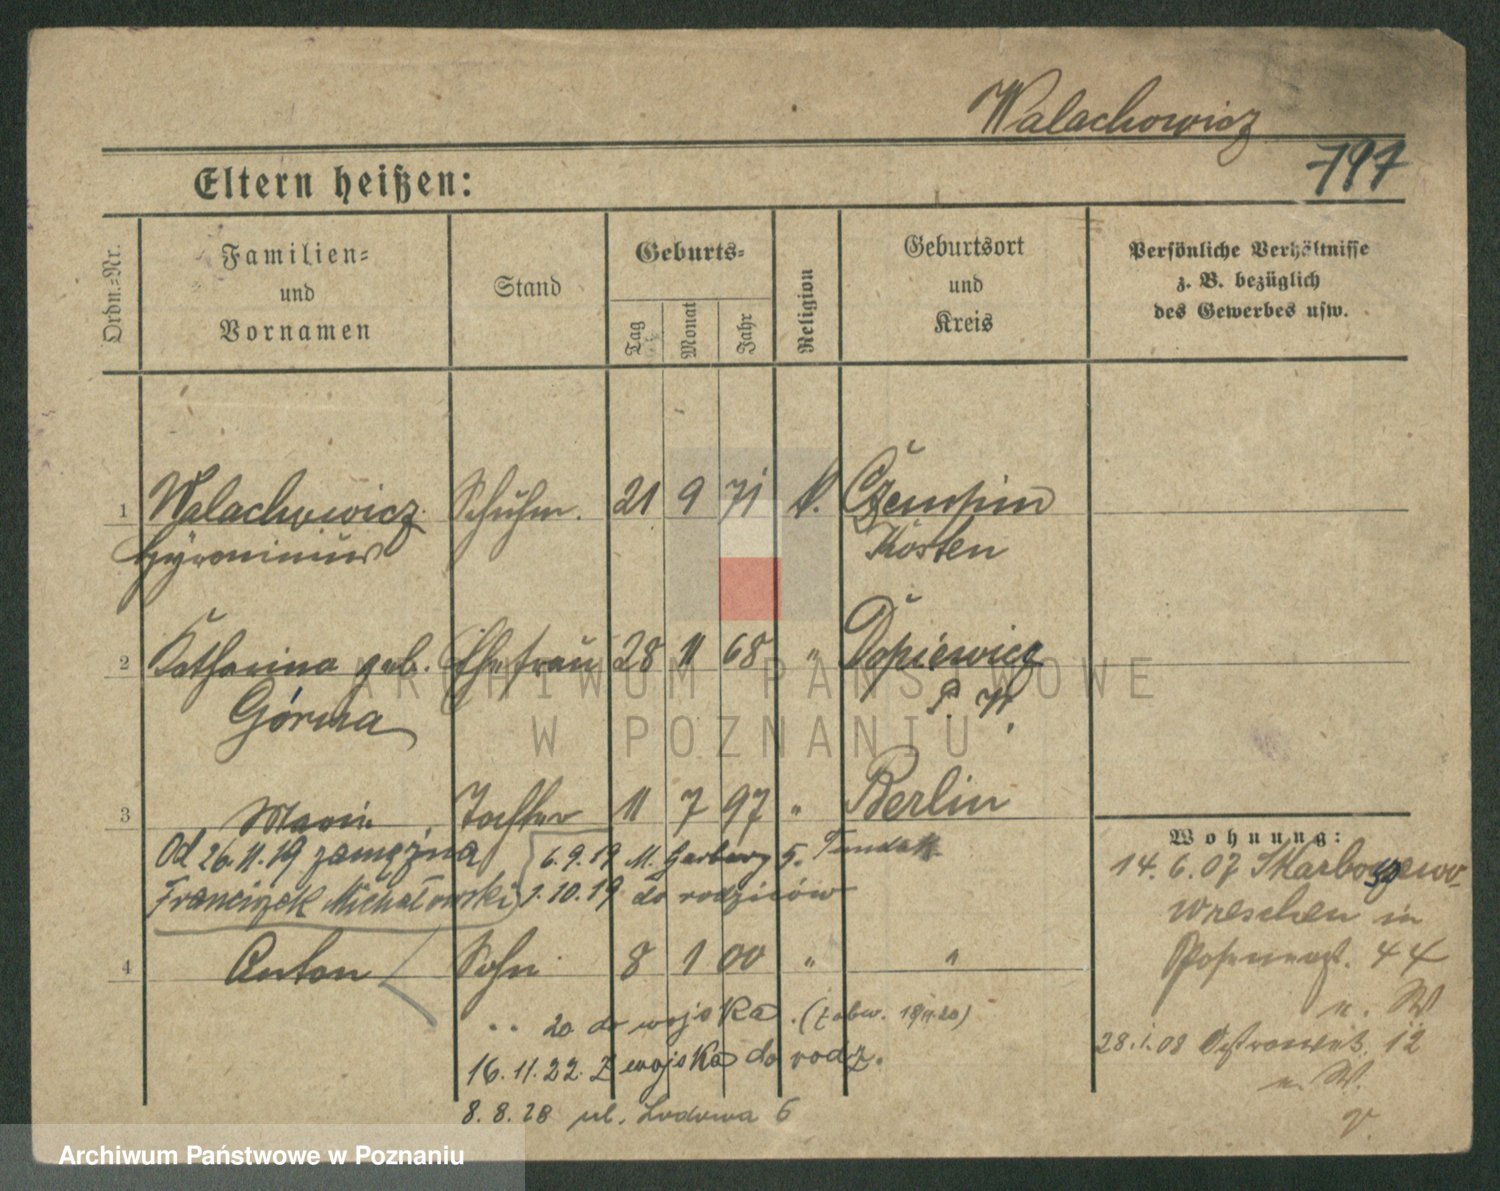 Walachowicz
797
Eltern heißen:
Ordn.=Nr.
Familien=
und
Vornamen
Stand
Geburts=
Tag
Monat
Jahr
Religion
Geburtsort
und
Kreis
Persönliche Verhältnisse
z. B. bezüglich
des Gewerbes usw.
1 Walachowicz Schuhm. 21 9 71 k. Czempin
Hyronimus Kosten
2 Katharina geb. Ehefrau 28 11 68 " Dopiewice
Górna P. W.
3 Marie Tochter 11 7 97 " Berlin
Od 26.11.19 zamężna 6.9.19 M. Garbary 5.
Franciszek Michałowski 1.10.19 do rodziców
4 Anton Sohn 8 1 00 " "
20 do wojska.
16.11.22. Z wojska do rodz.
8.8.28 ul. Lodowa 6
Wohnung:
14.6.07
Wreschen in
44
u. W
28.1.08 12
u. W.
ARCHIWUM PAŃSTWOWE
W POZNANIU
Archiwum Państwowe w Poznaniu